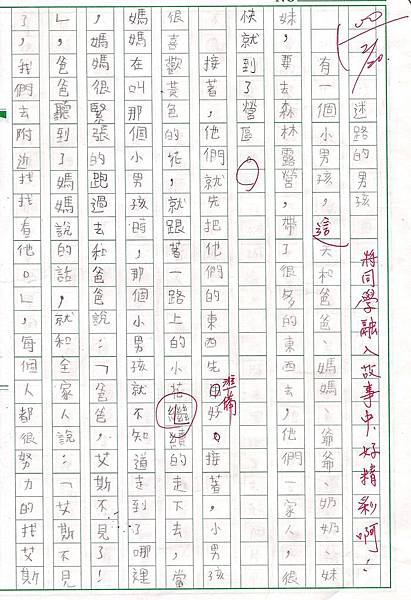 迷路的男孩
有一個小男孩，這天和爸爸、媽媽、爺爺、奶奶、妹
妹，要去森林露營，帶了很多的東西去，他們一家人，很
快就到了營區。
接著，他們就先把他們的東西先用好。接著，小男孩
準備
很喜歡黃色的小花，就跟著一路上的小花繼續的走下去，當
媽媽在叫那個小男孩時，那個小男孩就不知道走到了哪裡
，媽媽很緊張的跑過去和爸爸說：「爸爸，艾斯不見了！
」，爸爸聽到了媽媽說的話，就和全家人說：「艾斯不見
了，我們去附近找找有他。」，每個人都很努力的找艾斯
將同學融入故事中，好精彩啊！
2/20